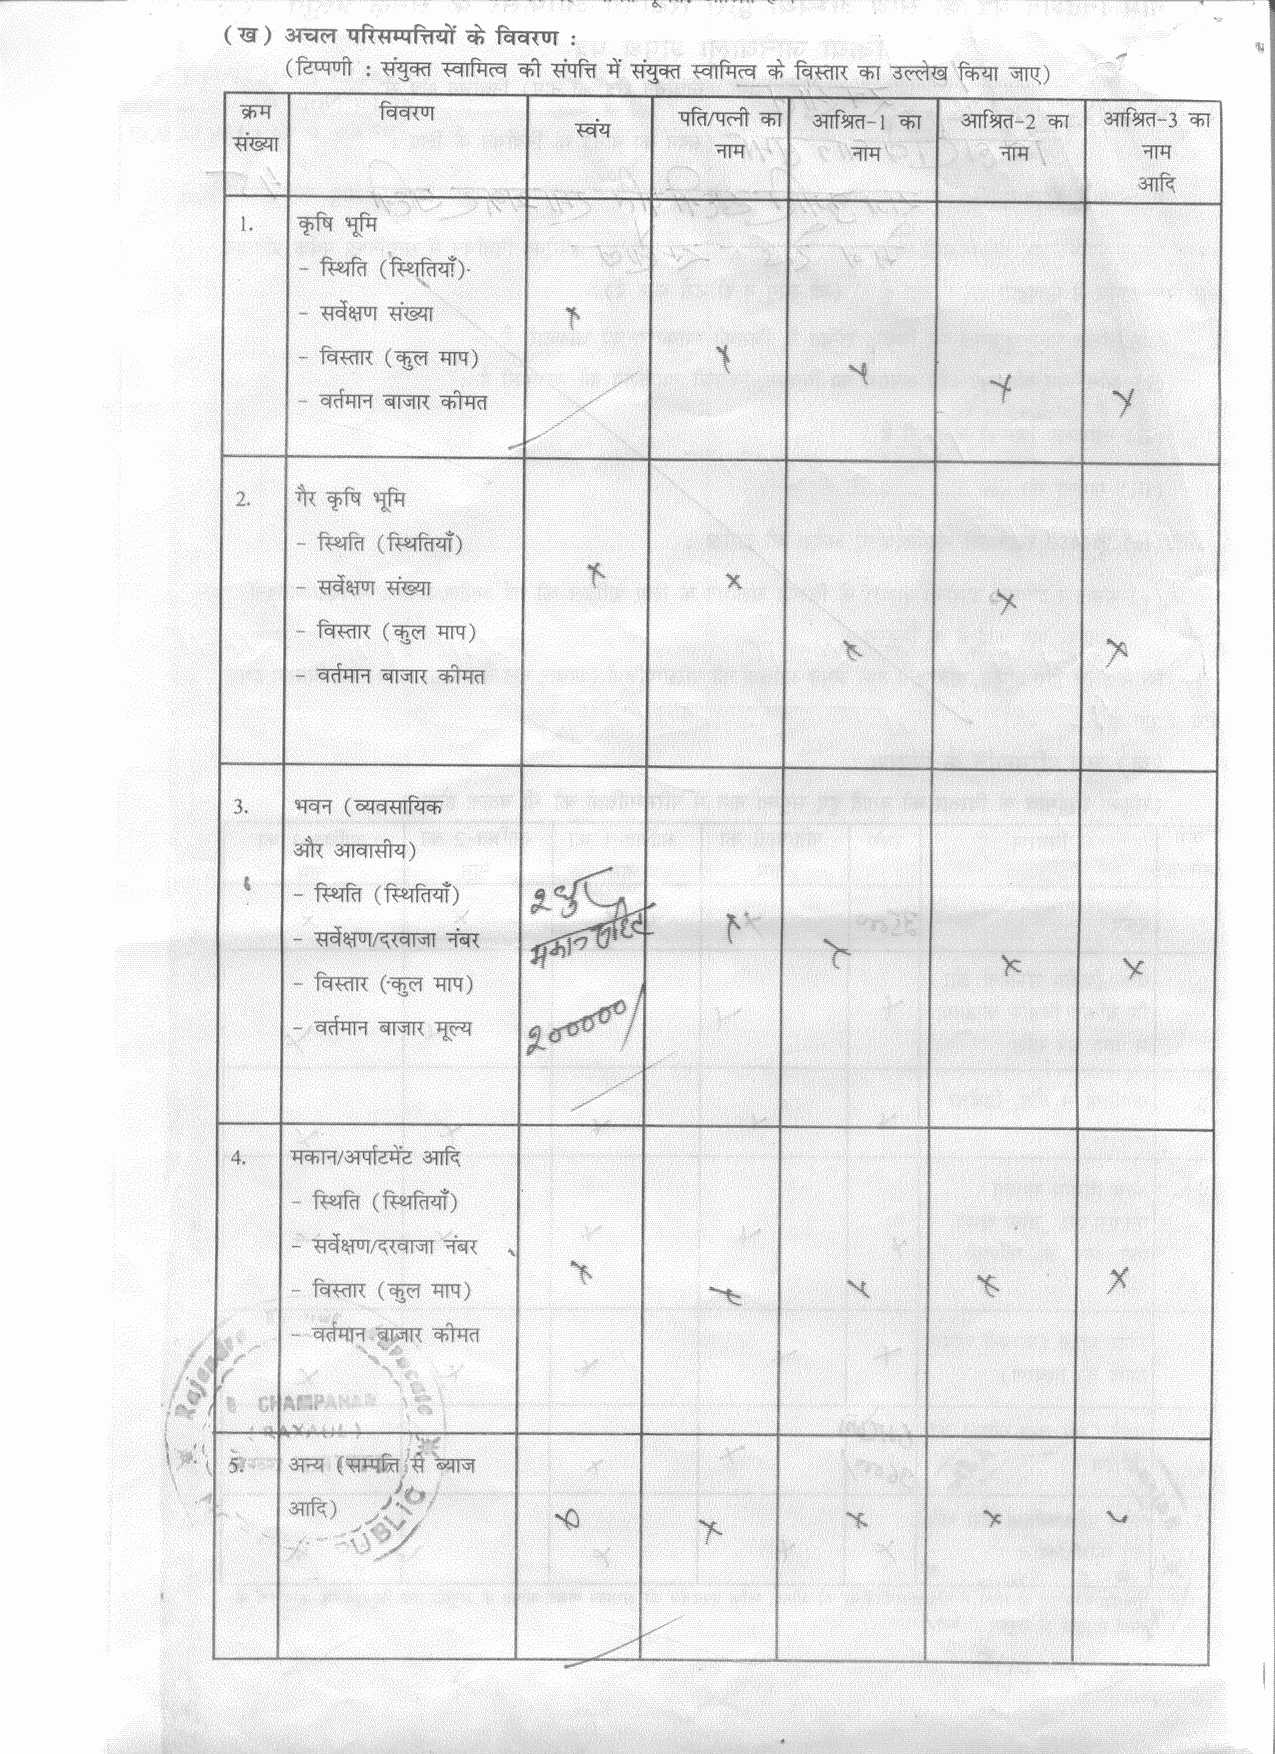 (ख) अचल परिसम्पत्तियों के विवरण :
(टिप्पणी : संयुक्त स्वामित्व की संपत्ति में संयुक्त स्वामित्व के विस्तार का उल्लेख किया जाए)
क्रम संख्या विवरण स्वंय पति/पत्नी का नाम आश्रित-1 का नाम आश्रित-2 का नाम आश्रित-3 का नाम आदि
1. कृषि भूमि
- स्थिति (स्थितियाँ)
- सर्वेक्षण संख्या x
- विस्तार (कुल माप) x x x x
- वर्तमान बाजार कीमत
2. गैर कृषि भूमि
- स्थिति (स्थितियाँ)
- सर्वेक्षण संख्या x x x
- विस्तार (कुल माप) x x
- वर्तमान बाजार कीमत
3. भवन (व्यवसायिक
और आवासीय)
- स्थिति (स्थितियाँ) २ धुर
- सर्वेक्षण/दरवाजा नंबर मकान सहित x x x x
- विस्तार (कुल माप)
- वर्तमान बाजार मूल्य २०००००/
4. मकान/अर्पाटमेंट आदि
- स्थिति (स्थितियाँ)
- सर्वेक्षण/दरवाजा नंबर
- विस्तार (कुल माप) x x x x x
- वर्तमान बाजार कीमत
Rajendra Advocate
CHAMPARAN
(RAXAUL)
5. अन्य (सम्पत्ति से ब्याज
आदि) x x x x
UBLIC